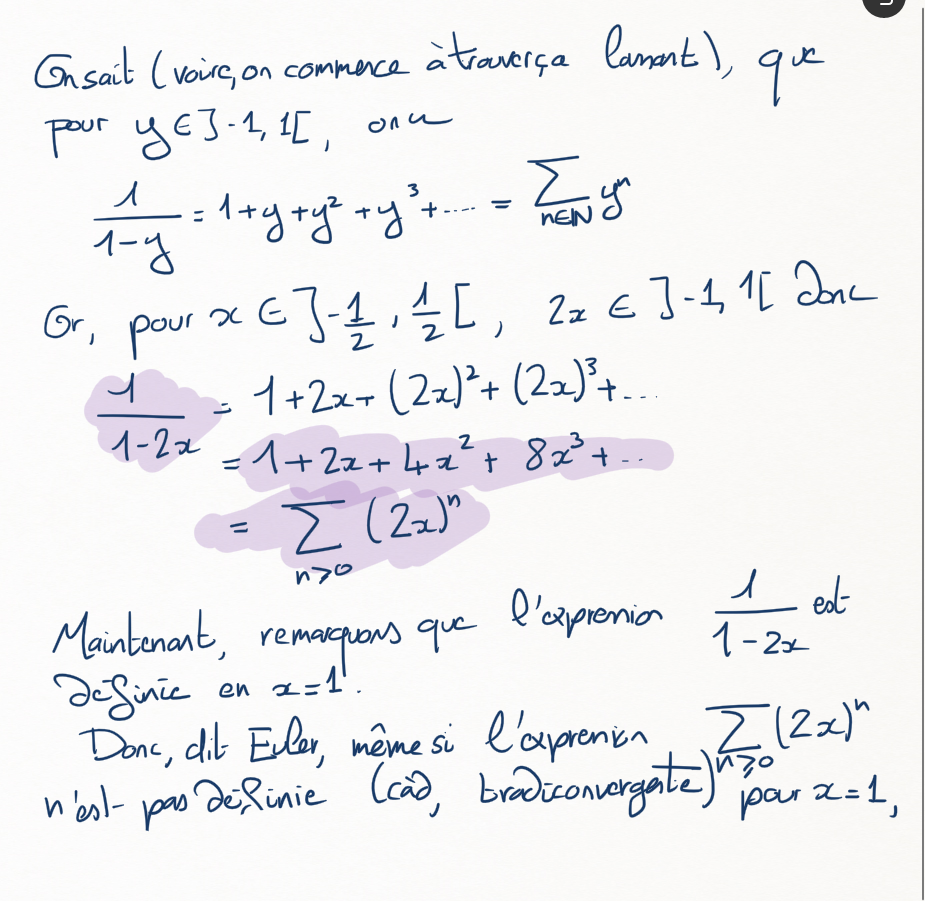 On sait (voire, on commence à traverça lamant), que
pour y ∈ ]-1, 1[, on a
1/(1-y) = 1+y+y²+y³+.... = ∑_{n∈ℕ} yⁿ
Or, pour x ∈ ]-1/2, 1/2[, 2x ∈ ]-1, 1[ donc
1/(1-2x) = 1+2x+(2x)²+(2x)³+...
= 1+2x+4x²+8x³+..
= ∑_{n⩾0} (2x)ⁿ
Maintenant, remarquons que l'expression 1/(1-2x) est
définie en x=1.
Donc, dit Euler, même si l'expression ∑_{n⩾0} (2x)ⁿ
n'est pas définie (càd, bradiconvergate) pour x=1,